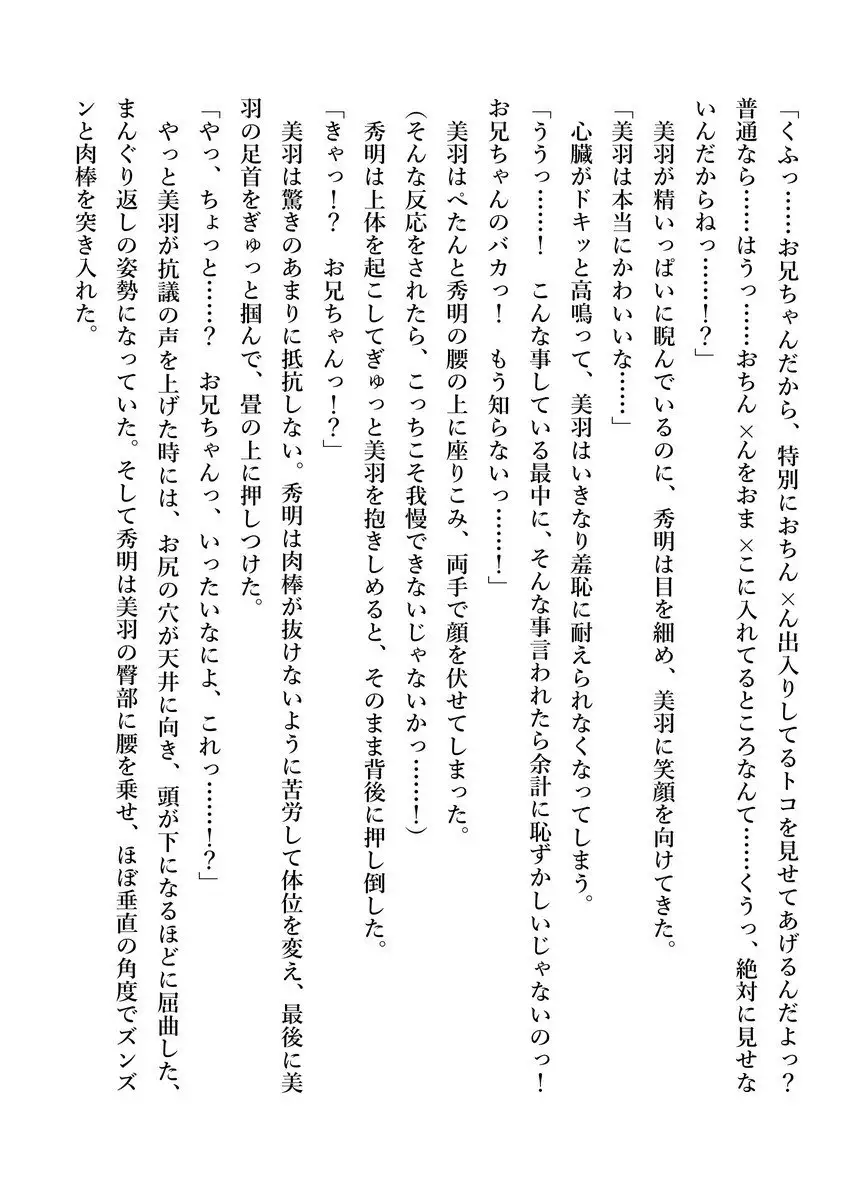 「くふっ……お兄ちゃんだから、特別におちん×ん出入りしてるトコを見せてあげるんだよっ？
普通なら……はうっ……おちん×んをおま×こに入れてるところなんて……くうっ、絶対に見せな
いんだからねっ……！？」
美羽が精いっぱいに睨んでいるのに、秀明は目を細め、美羽に笑顔を向けてきた。
「美羽は本当にかわいいな……」
心臓がドキッと高鳴って、美羽はいきなり羞恥に耐えられなくなってしまう。
「ううっ……！　こんな事している最中に、そんな事言われたら余計に恥ずかしいじゃないのっ！
お兄ちゃんのバカっ！　もう知らないっ……！」
美羽はぺたんと秀明の腰の上に座りこみ、両手で顔を伏せてしまった。
（そんな反応をされたら、こっちこそ我慢できないじゃないかっ……！）
秀明は上体を起こしてぎゅっと美羽を抱きしめると、そのまま背後に押し倒した。
「きゃっ！？　お兄ちゃんっ！？」
美羽は驚きのあまりに抵抗しない。秀明は肉棒が抜けないように苦労して体位を変え、最後に美
羽の足首をぎゅっと掴んで、畳の上に押しつけた。
「やっ、ちょっと……？　お兄ちゃんっ、いったいなによ、これっ……！？」
やっと美羽が抗議の声を上げた時には、お尻の穴が天井に向き、頭が下になるほどに屈曲した、
まんぐり返しの姿勢になっていた。そして秀明は美羽の臀部に腰を乗せ、ほぼ垂直の角度でズンズ
ンと肉棒を突き入れた。